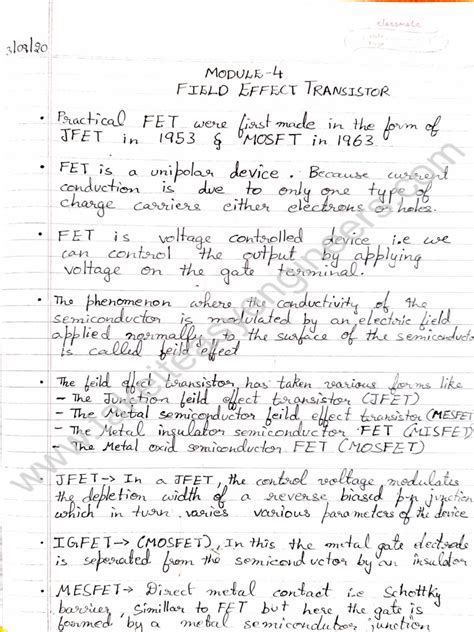 classmate
3/03/20
MODULE-4
FIELD EFFECT TRANSISTOR
• Practical FET were first made in the form of
JFET in 1953 & MOSFT in 1963.
• FET is a unipolar device. Because current
conduction is due to only one type of
charge carriers either electrons or holes.
• FET is voltage controlled device i.e we
can control the output by applying
voltage on the gate terminal.
• The phenomenon where the conductivity of the
semiconductor is modulated by an electric field
applied normally to the surface of the semiconductor
is called feild effect
• The feild effect transistor, has taken various forms like
- The Junction feild effect transistor (JFET)
- The Metal semiconductor feild effect transistor (MESFET
- The Metal insulator semiconductor FET (MISFET)
- The Metal oxid semiconductor FET (MOSFET)
• JFET → In a JFET, the control voltage modulates
the depletion width of a reverse biased p-n junction
which in turn varies various parameters of the device
• IGFET → (MOSFET), In this the metal gate electrode
is seperated from the semiconductor by an insulator
• MESFET → Direct metal contact i.e Schottky
barrier, Simillar to FET but here the gate is
formed by a metal semiconductor junction